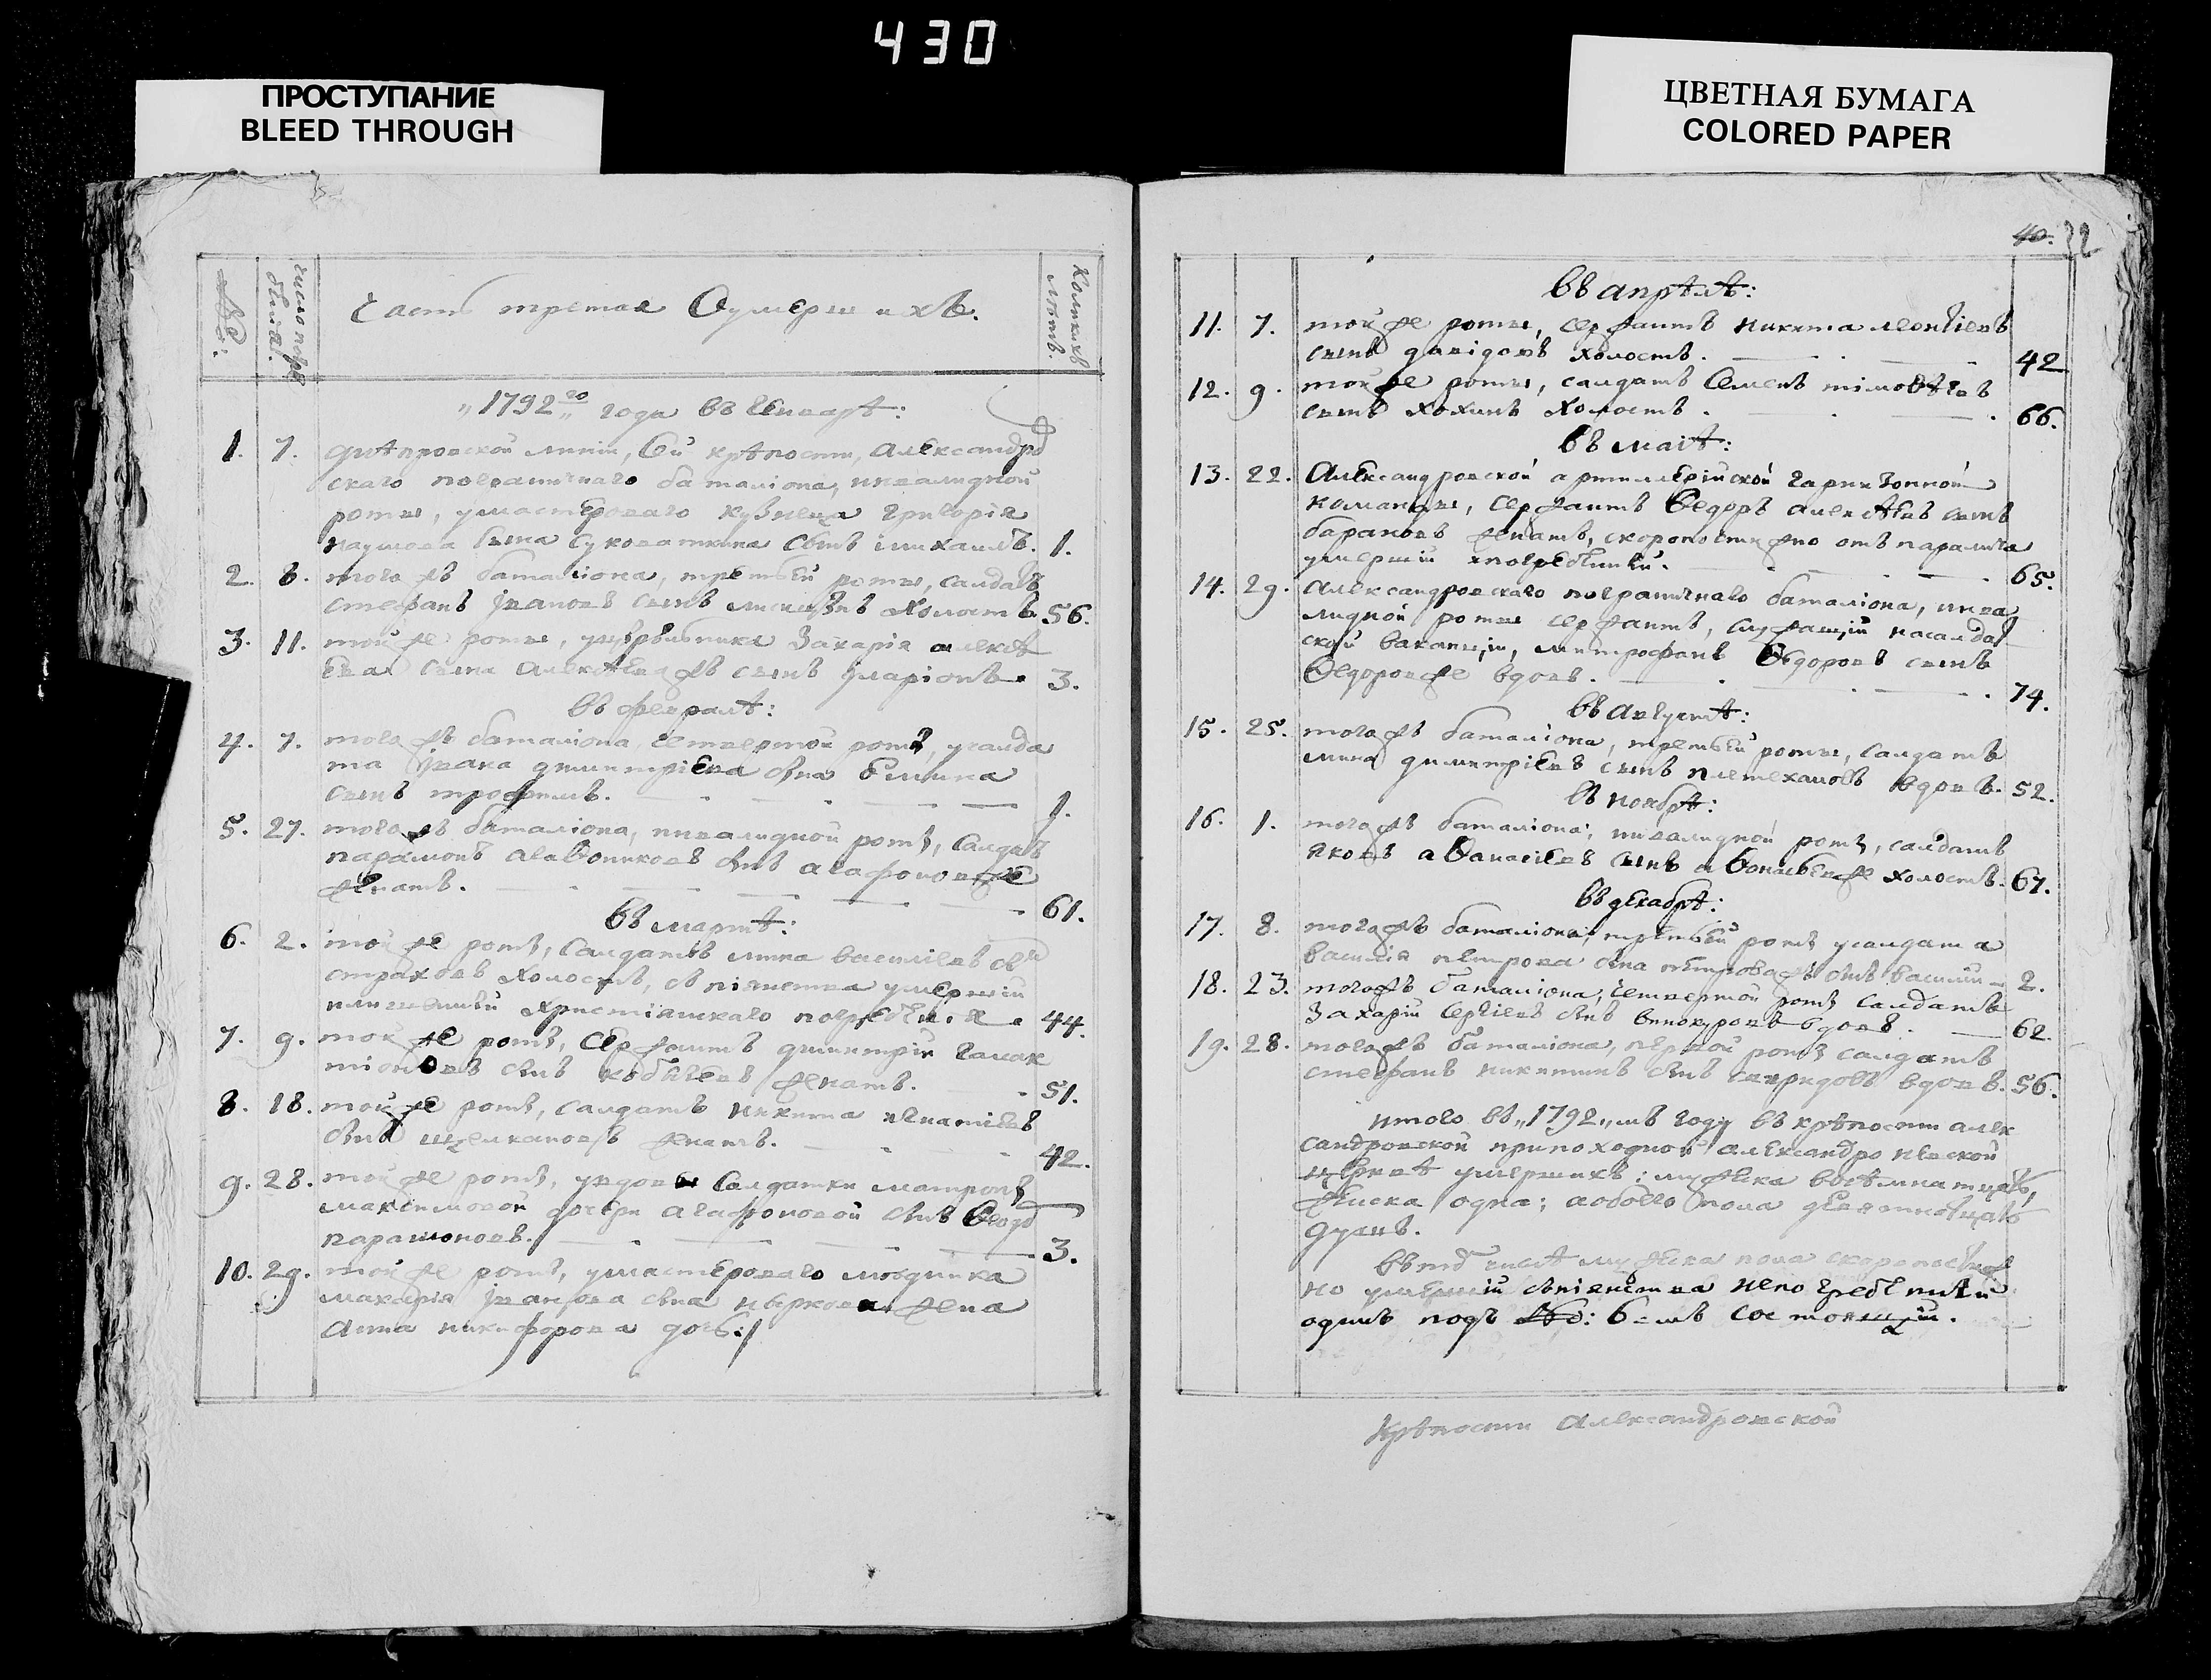 430
ПРОСТУПАНИЕ
BLEED THROUGH
ЦВЕТНАЯ БУМАГА
COLORED PAPER
№:
число погребения
Часть третая Оумершихъ.
Коликихъ лѣтъ.
„1792го„ года въ Генварѣ:
1. 7. днѣпровской линіи, 6й крѣпости, Александро
скаго пограничнаго баталіона, инвалидной
роты, умастероваго кузнеца григорія
наумова сына Суковаткина сынъ михаилъ. 1.
2. 8. того жъ баталіона, третьей роты, салдатъ
стефанъ Ївановъ сынъ холостъ. 56.
3. 11. той же роты, Захарія алексѣ
ева сына Алексѣева жъ сынъ Їларіонъ. 3.
въ февралѣ:
4. 7. того жъ баталіона четвертой роты, усалда
та Їсака димитріева сна
сынъ трофимъ. 1.
5. 27. того жъ баталіона, инвалидной роты, Салдатъ
парамонъ агаѳониковъ снъ агафоновже
женатъ. 61.
въ мартѣ:
6. 2. той же роты, Салдатъ мина василіевъ снъ
страховъ холостъ, съ піянства умершій
христіянскаго погребенія. 44.
7. 9. той же роты, Сержантъ димитрій Галак
тіоновъ снъ женатъ. 51.
8. 18. той же роты, салдатъ никита игнатіевъ
снъ щелкановъ женатъ. 42.
9. 28. той же роты, увдовы Салдатки матроны
максимовой дочери агафоновой снъ Ѳеодоръ
парамоновъ. 3.
10. 29. той же роты, умастероваго
макарія Їванова сна жена
Анна никифорова дочь:
40. 32
въ апрѣлѣ:
11. 7. той же роты, сержантъ никита леонтіевъ
сынъ давідовъ холостъ. 42
12. 9. той же роты, салдатъ Семенъ тімоѳѣевъ
сынъ хохинъ холостъ. 66.
въ маіѣ:
13. 22. Александровской артиллерійской гарнизонной
команды, сержантъ Ѳедоръ алексѣевъ сынъ
барановъ женатъ, скоропостижно отъ паралича
умершій ипогребенный. 65.
14. 29. Александровскаго пограничнаго баталіона, инва
лидной роты сержантъ, служащій насалдат
ской ваканціи, митрофанъ Ѳедоровъ сынъ
Ѳедоровже вдовъ. 74.
въ Августѣ:
15. 25. того жъ баталіона, третьей роты, Салдатъ
мина димитріевъ сынъ плетехановъ вдовъ. 52.
въ ноябрѣ:
16. 1. того жъ баталіона, инвалидной роты, салдатъ
яковъ аѳанасіевъ сынъ аѳонасьевже холостъ. 67.
въ декабрѣ:
17. 8. того жъ баталіона, третьей роты усалдата
василія петрова сна петрова жъ снъ василій 2.
18. 23. того жъ баталіона, четвертой роты Салдатъ
Захарій Сергіевъ снъ винокуровъ вдовъ. 62.
19. 28. того жъ баталіона, первой роты салдатъ
стефанъ никитинъ снъ свиридовъ вдовъ. 56.
итого въ„1792„мъ году въ крѣпости алек
сандровской припоходной александро невской
церквѣ умершихъ: мужеска восѣмнатцать,
женска одна; аобоего пола девятнатцать
душъ.
въ томъ числѣ мужеска пола скоропостиж
но умершій съпіянства непогребенный
одинъ подъ №: 6=мъ состоящій.
Крѣпости Александровской